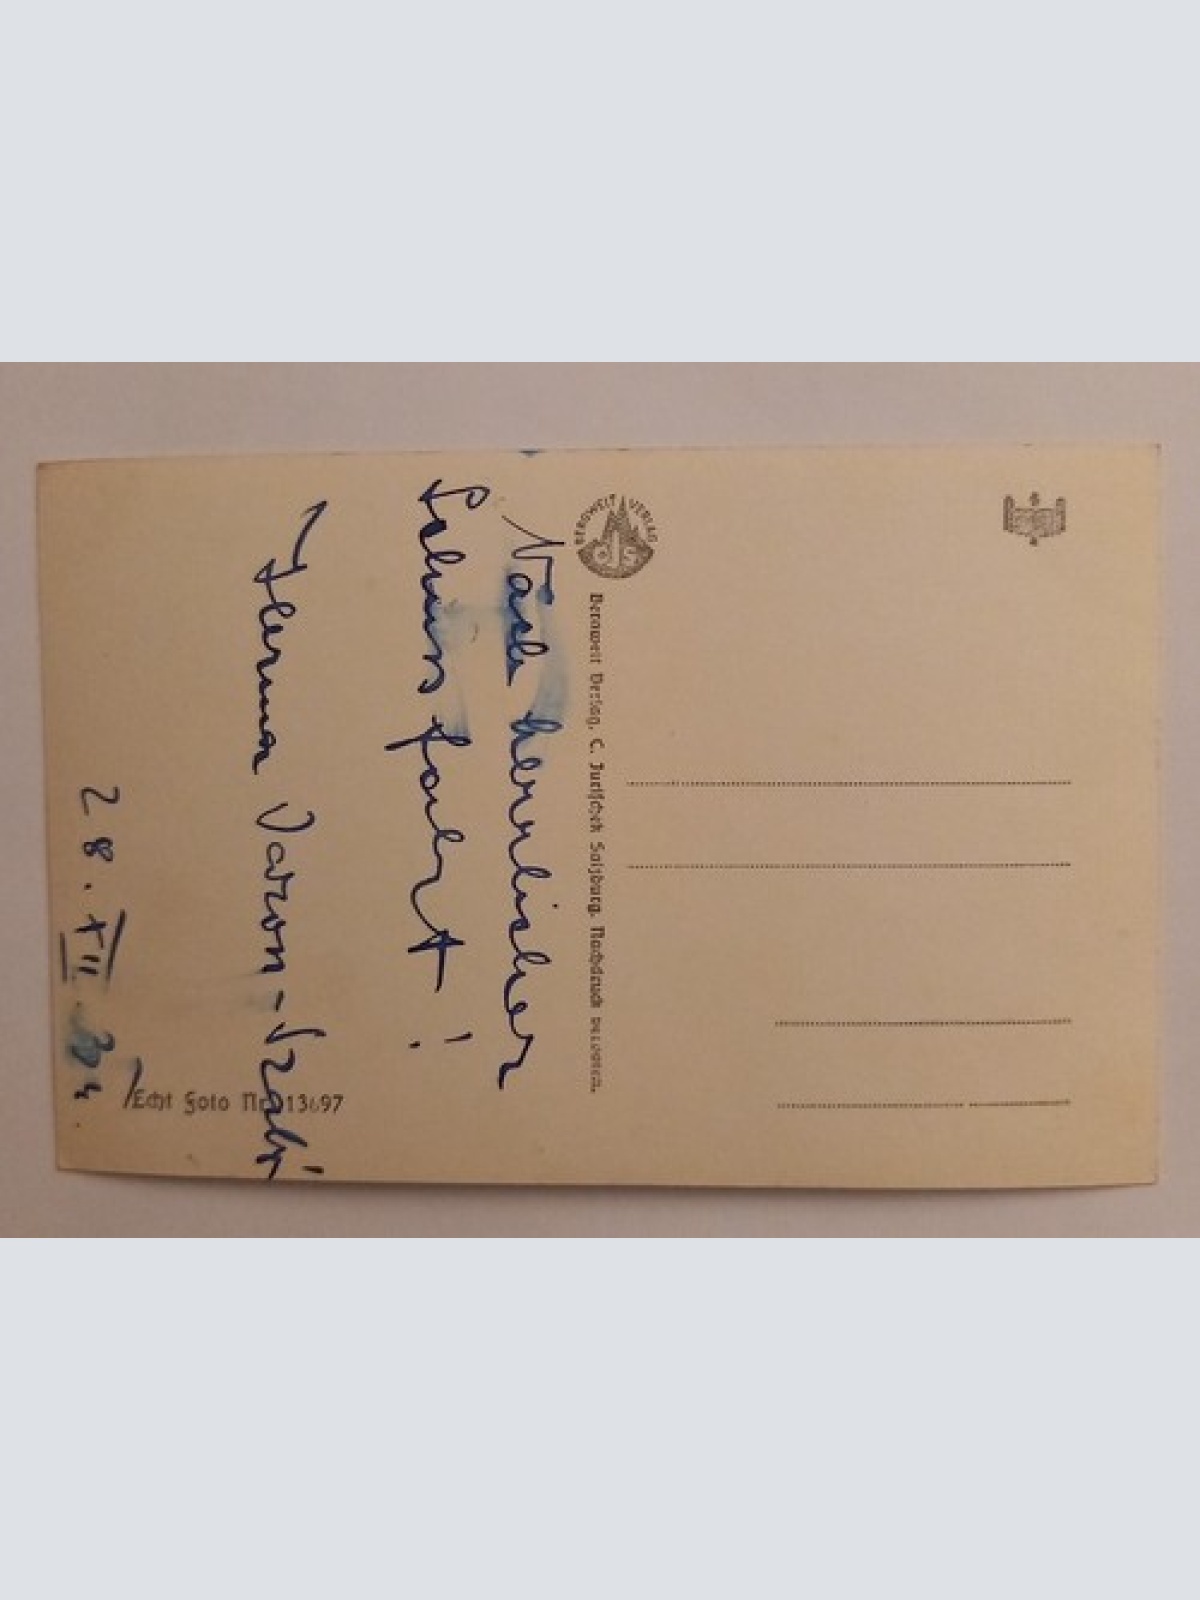 Nach herrlicher
Schussfahrt!
Herma
28. XII.
BERGWELT VERLAG
CJS
Bergwelt Verlag, C. Jurischek Salzburg. Nachdruck verboten.
Echt Foto Nr. 13697